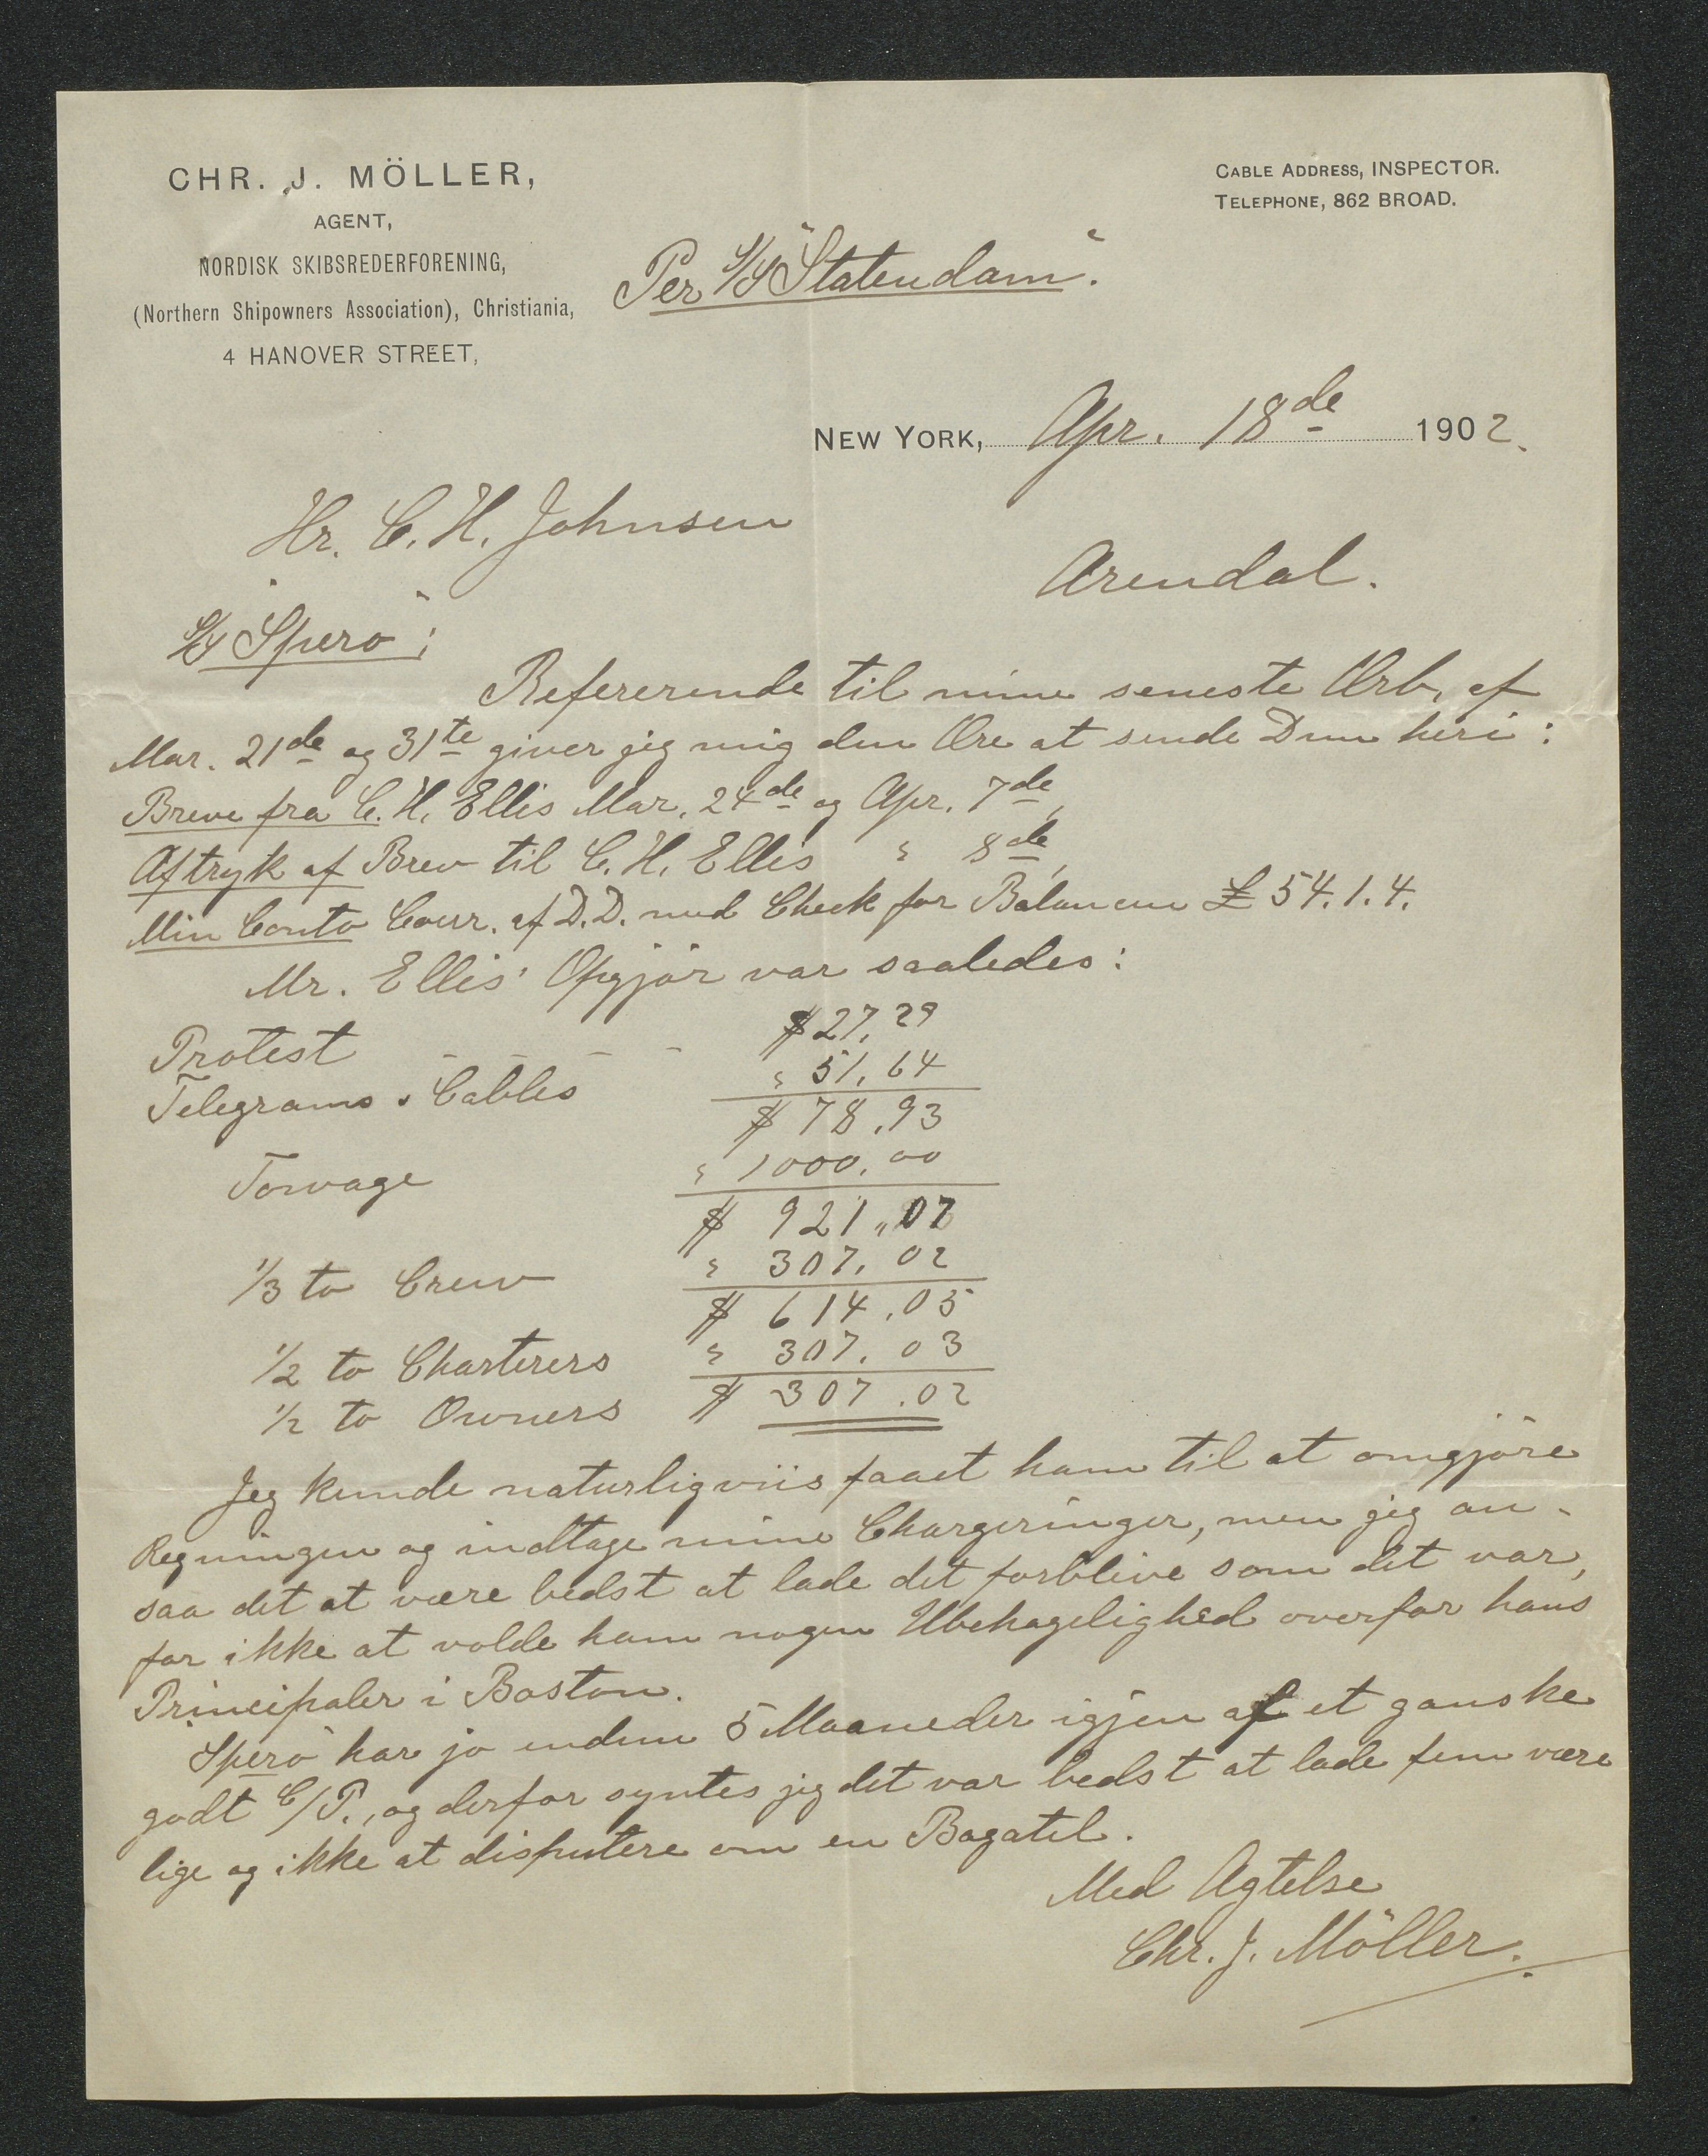 CHR. J. MÖLLER,
AGENT,
NORDISK SKIBSREDERFORENING,
(Northern Shipowners Association), Christiania,
4 HANOVER STREET,
CABLE ADDRESS, INSPECTOR.
TELEPHONE, 862 BROAD.
Per S/S "Statendam".
NEW YORK, Apr. 18de 1902.
Hr. C. H. Johnsen
Arendal.
S/S "Spero";
Refererende til mine seneste Ærb. af
Mar. 21de og 31te giver jeg mig den Ære at sende Dem heri:
Breve fra C. H. Ellis Mar. 24de og Apr. 7de,
Aftryk af Brev til C. H. Ellis " 8de,
Min Conto Cour. af D.D. med Check for Balancen £ 54.1.4.
Mr. Ellis' Opgjör var saaledes:
Protest $ 27.29
Telegrams & Cables " 51.64
$ 78.93
Towage " 1000.00
$ 921.07
1/3 to Crew " 307.02
$ 614.05
1/2 to Charterers " 307.03
1/2 to Owners $ 307.02
Jeg kunde naturligviis faaet ham til at omgjöre
Regningen og indtage mine Chargeringer, men jeg an-
saa det at være bedst at lade det forblive som det var,
for ikke at volde ham nogen Ubehagelighed overfor hans
Principaler i Boston.
"Spero" har jo endnu 5 Maaneder igjen af et ganske
godt C/P., og derfor syntes jeg det var bedst at lade fem være
lige og ikke at disputere om en Bagatel.
Med Agtelse
Chr. J. Möller.